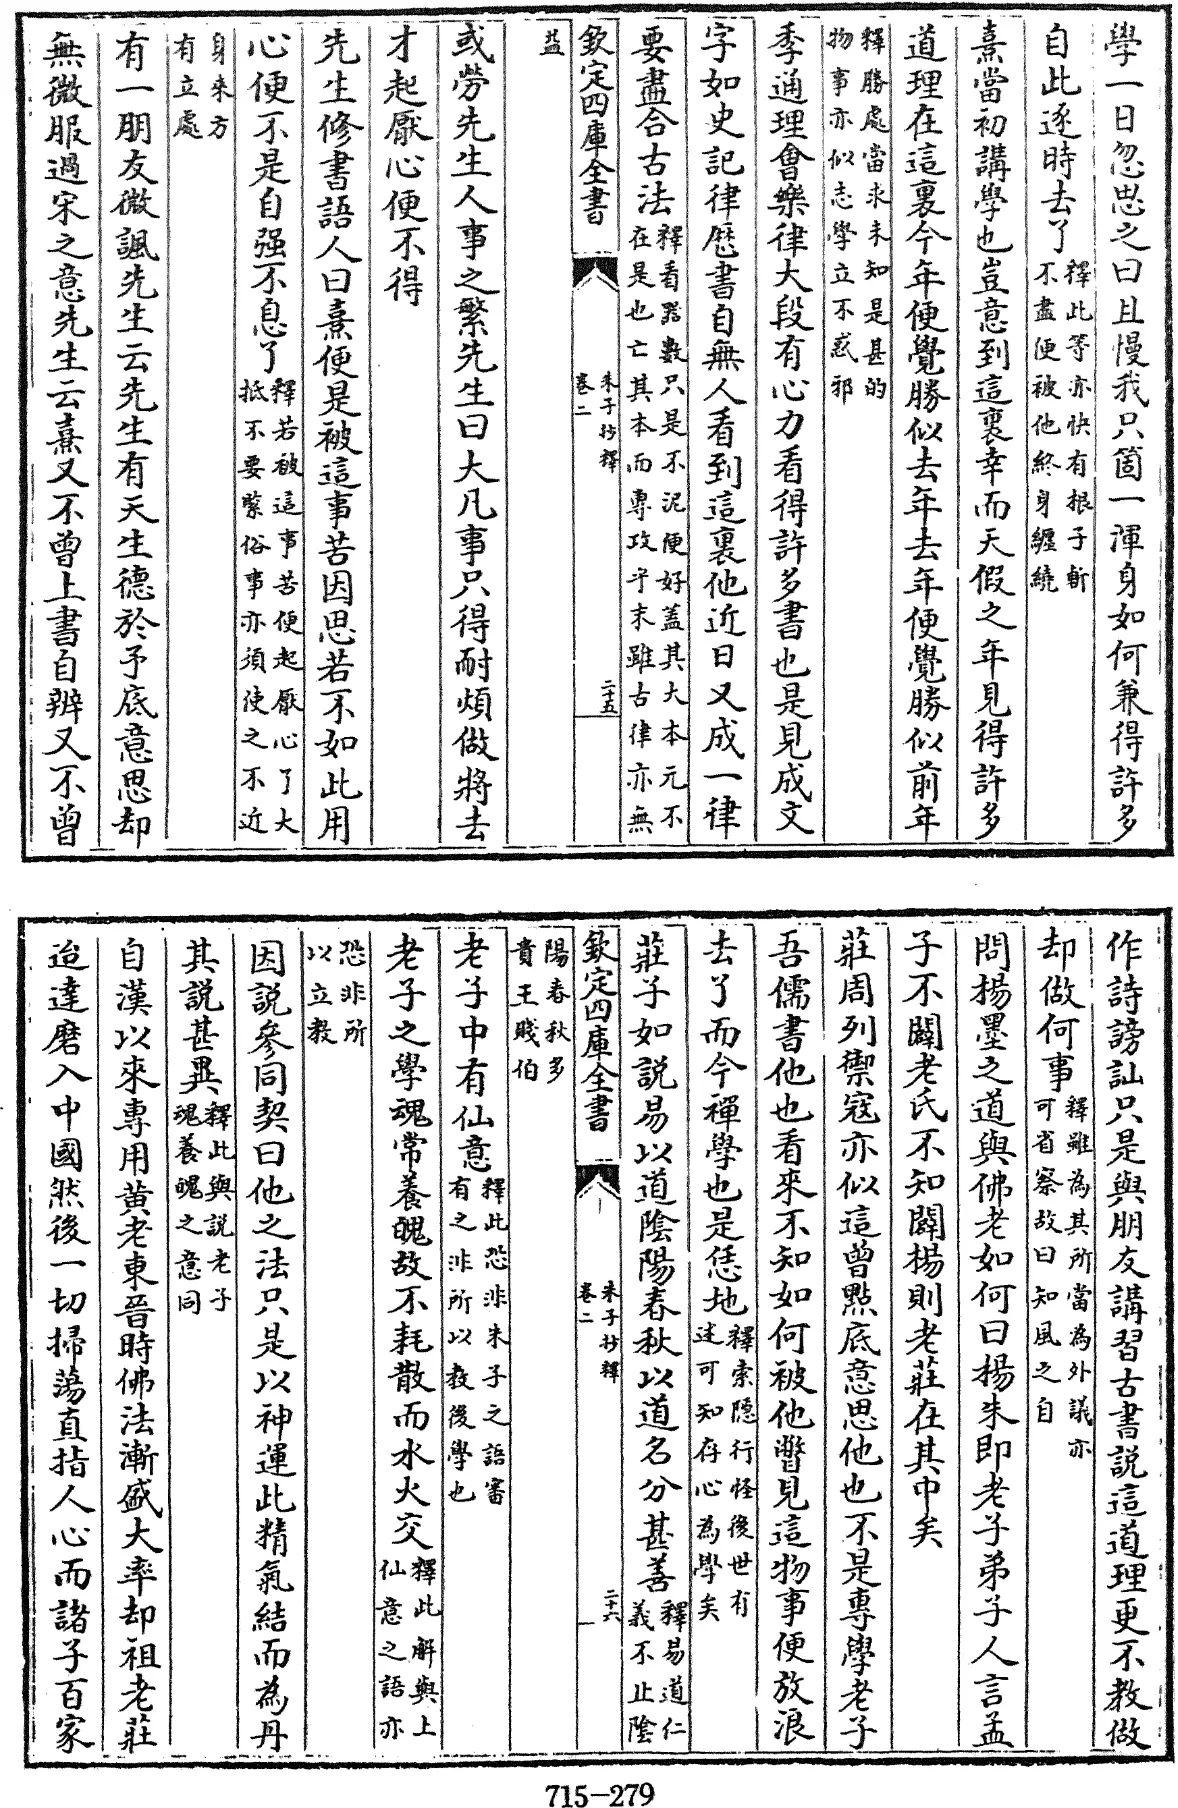 學一日忽思之曰且慢我只箇一渾身如何兼得許多
自此逐時去了釋此等亦快有根子斬
不盡便被他終身纏繞
熹當初講學也豈意到這裏幸而天假之年見得許多
道理在這裏今年便覺勝似去年去年便覺勝似前年
釋勝處當求未知是甚的
物事亦似志學立不惑邪
季通理會樂律大段有心力看得許多書也是見成文
字如史記律歷書自無人看到這裏他近日又成一律
要盡合古法釋看器數只是不泥便好蓋其大本元不
在是也亡其本而專攻乎末雖古律亦無
欽定四庫全書
朱子抄釋
卷二
二十五
益
或勞先生人事之繁先生曰大凡事只得耐煩做將去
才起厭心便不得
先生修書語人曰熹便是被這事苦因思若不如此用
心便不是自强不息了釋若被這事苦便起厭心了大
抵不要緊俗事亦須使之不近
身来方
有立處
有一朋友微諷先生云先生有天生德於予底意思却
無微服過宋之意先生云熹又不曾上書自辨又不曾
作詩謗訕只是與朋友講習古書説這道理更不教做
却做何事釋雖為其所當為外議亦
可省察故曰知風之自
問楊墨之道與佛老如何曰楊朱即老子弟子人言孟
子不闢老氏不知闢楊則老莊在其中矣
莊周列禦寇亦似這曾㸃底意思他也不是專學老子
吾儒書他也看來不知如何被他瞥見這物事便放浪
去了而今禪學也是恁地釋索隱行怪後世有
述可知存心為學矣
莊子如説易以道陰陽春秋以道名分甚善釋易道仁
義不止陰
欽定四庫全書
朱子抄釋
卷二
二十六
陽春秋多
貴王賤伯
老子中有仙意釋此恐非朱子之語審
有之非所以教後學也
老子之學魂常養魄故不耗散而水火交釋此解與上
仙意之語亦
恐非所
以立教
因説參同契曰他之法只是以神運此精氣結而為丹
其説甚異釋此與説老子
魂養魄之意同
自漢以來專用黄老東晉時佛法漸盛大率却祖老莊
迨達磨入中國然後一切掃蕩直指人心而諸子百家
715-279